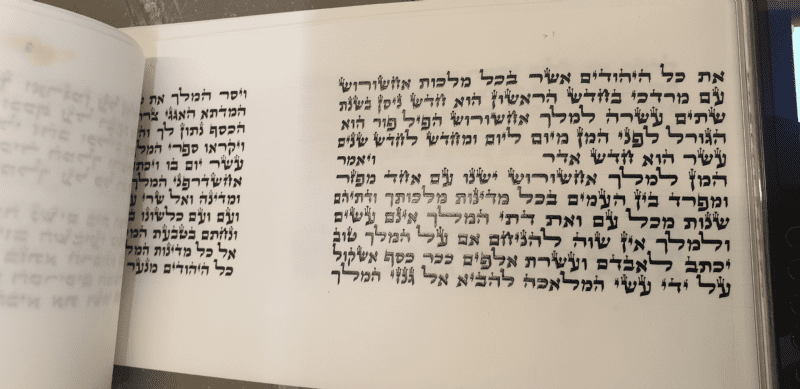 את כל היהודים אשר בכל מלכות אחשורוש
עם מרדכי בחדש הראשון הוא חדש ניסן בשנת
שתים עשרה למלך אחשורוש הפיל פור הוא
הגורל לפני המן מיום ליום ומחדש לחדש שנים
עשר הוא חדש אדר ויאמר
המן למלך אחשורוש ישנו עם אחד מפזר
ומפרד בין העמים בכל מדינות מלכותך ודתיהם
שנות מכל עם ואת דתי המלך אינם עשים
ולמלך אין שוה להניחם אם על המלך טוב
יכתב לאבדם ועשרת אלפים ככר כסף אשקול
על ידי עשי המלאכה להביא אל גנזי המלך
ויסר המלך את
המדתא האגגי
הכסף נתון לך
ויקראו ספרי
עשר יום בו
אחשדרפני המלך
ומדינה ואל שרי
ועם ועם כלשונו
ונחתם בטבעת
אל כל מדינות
כל היהודים מנער